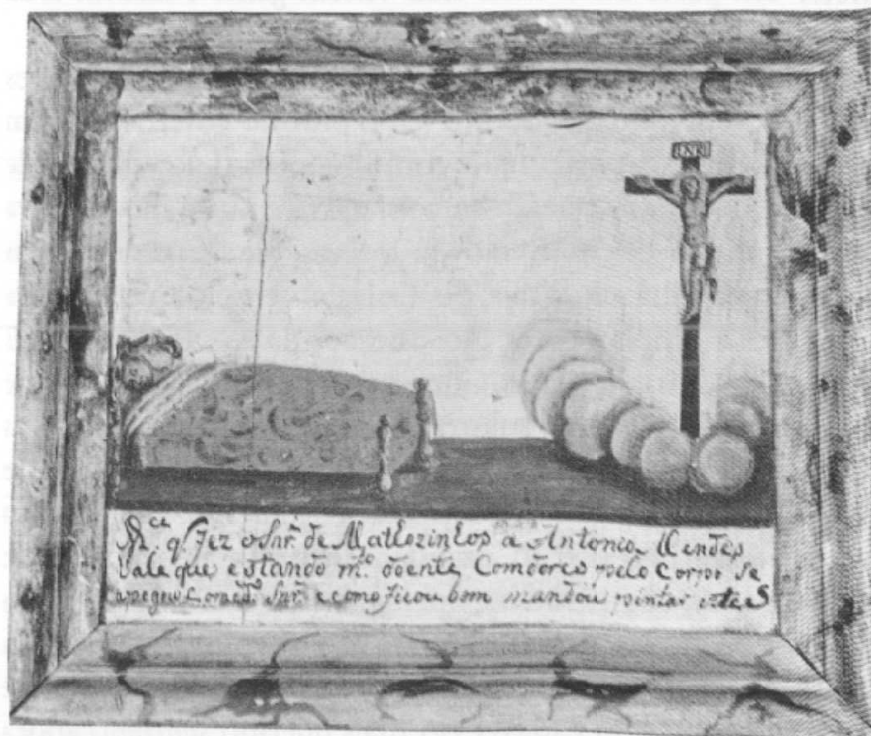 INRI
M.ce q. Fez o Snr. de Matlozinhos a Antonio Mendes
Vale que estando m.to doente Com dores pelo Corpo Se
apegou Com o d. Snr. e como ficou bom mandou pintar este S